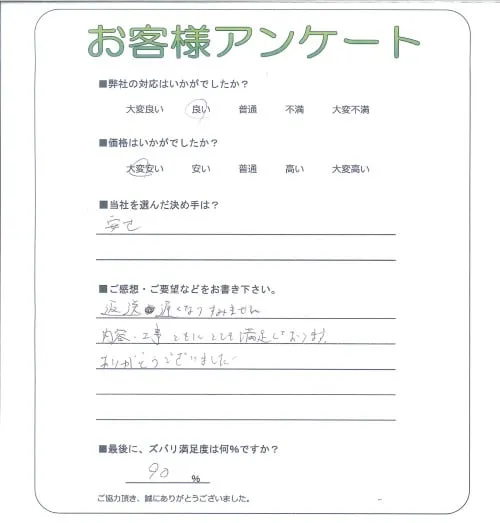 お客様アンケート
■弊社の対応はいかがでしたか？
大変良い 良い 普通 不満 大変不満
■価格はいかがでしたか？
大変安い 安い 普通 高い 大変高い
■当社を選んだ決め手は？
安さ
■ご感想・ご要望などをお書き下さい。
返送遅くなりすみません
内容・工事ともにとても満足しております。
ありがとうございました
■最後に、ズバリ満足度は何％ですか？
90 %
ご協力頂き、誠にありがとうございました。